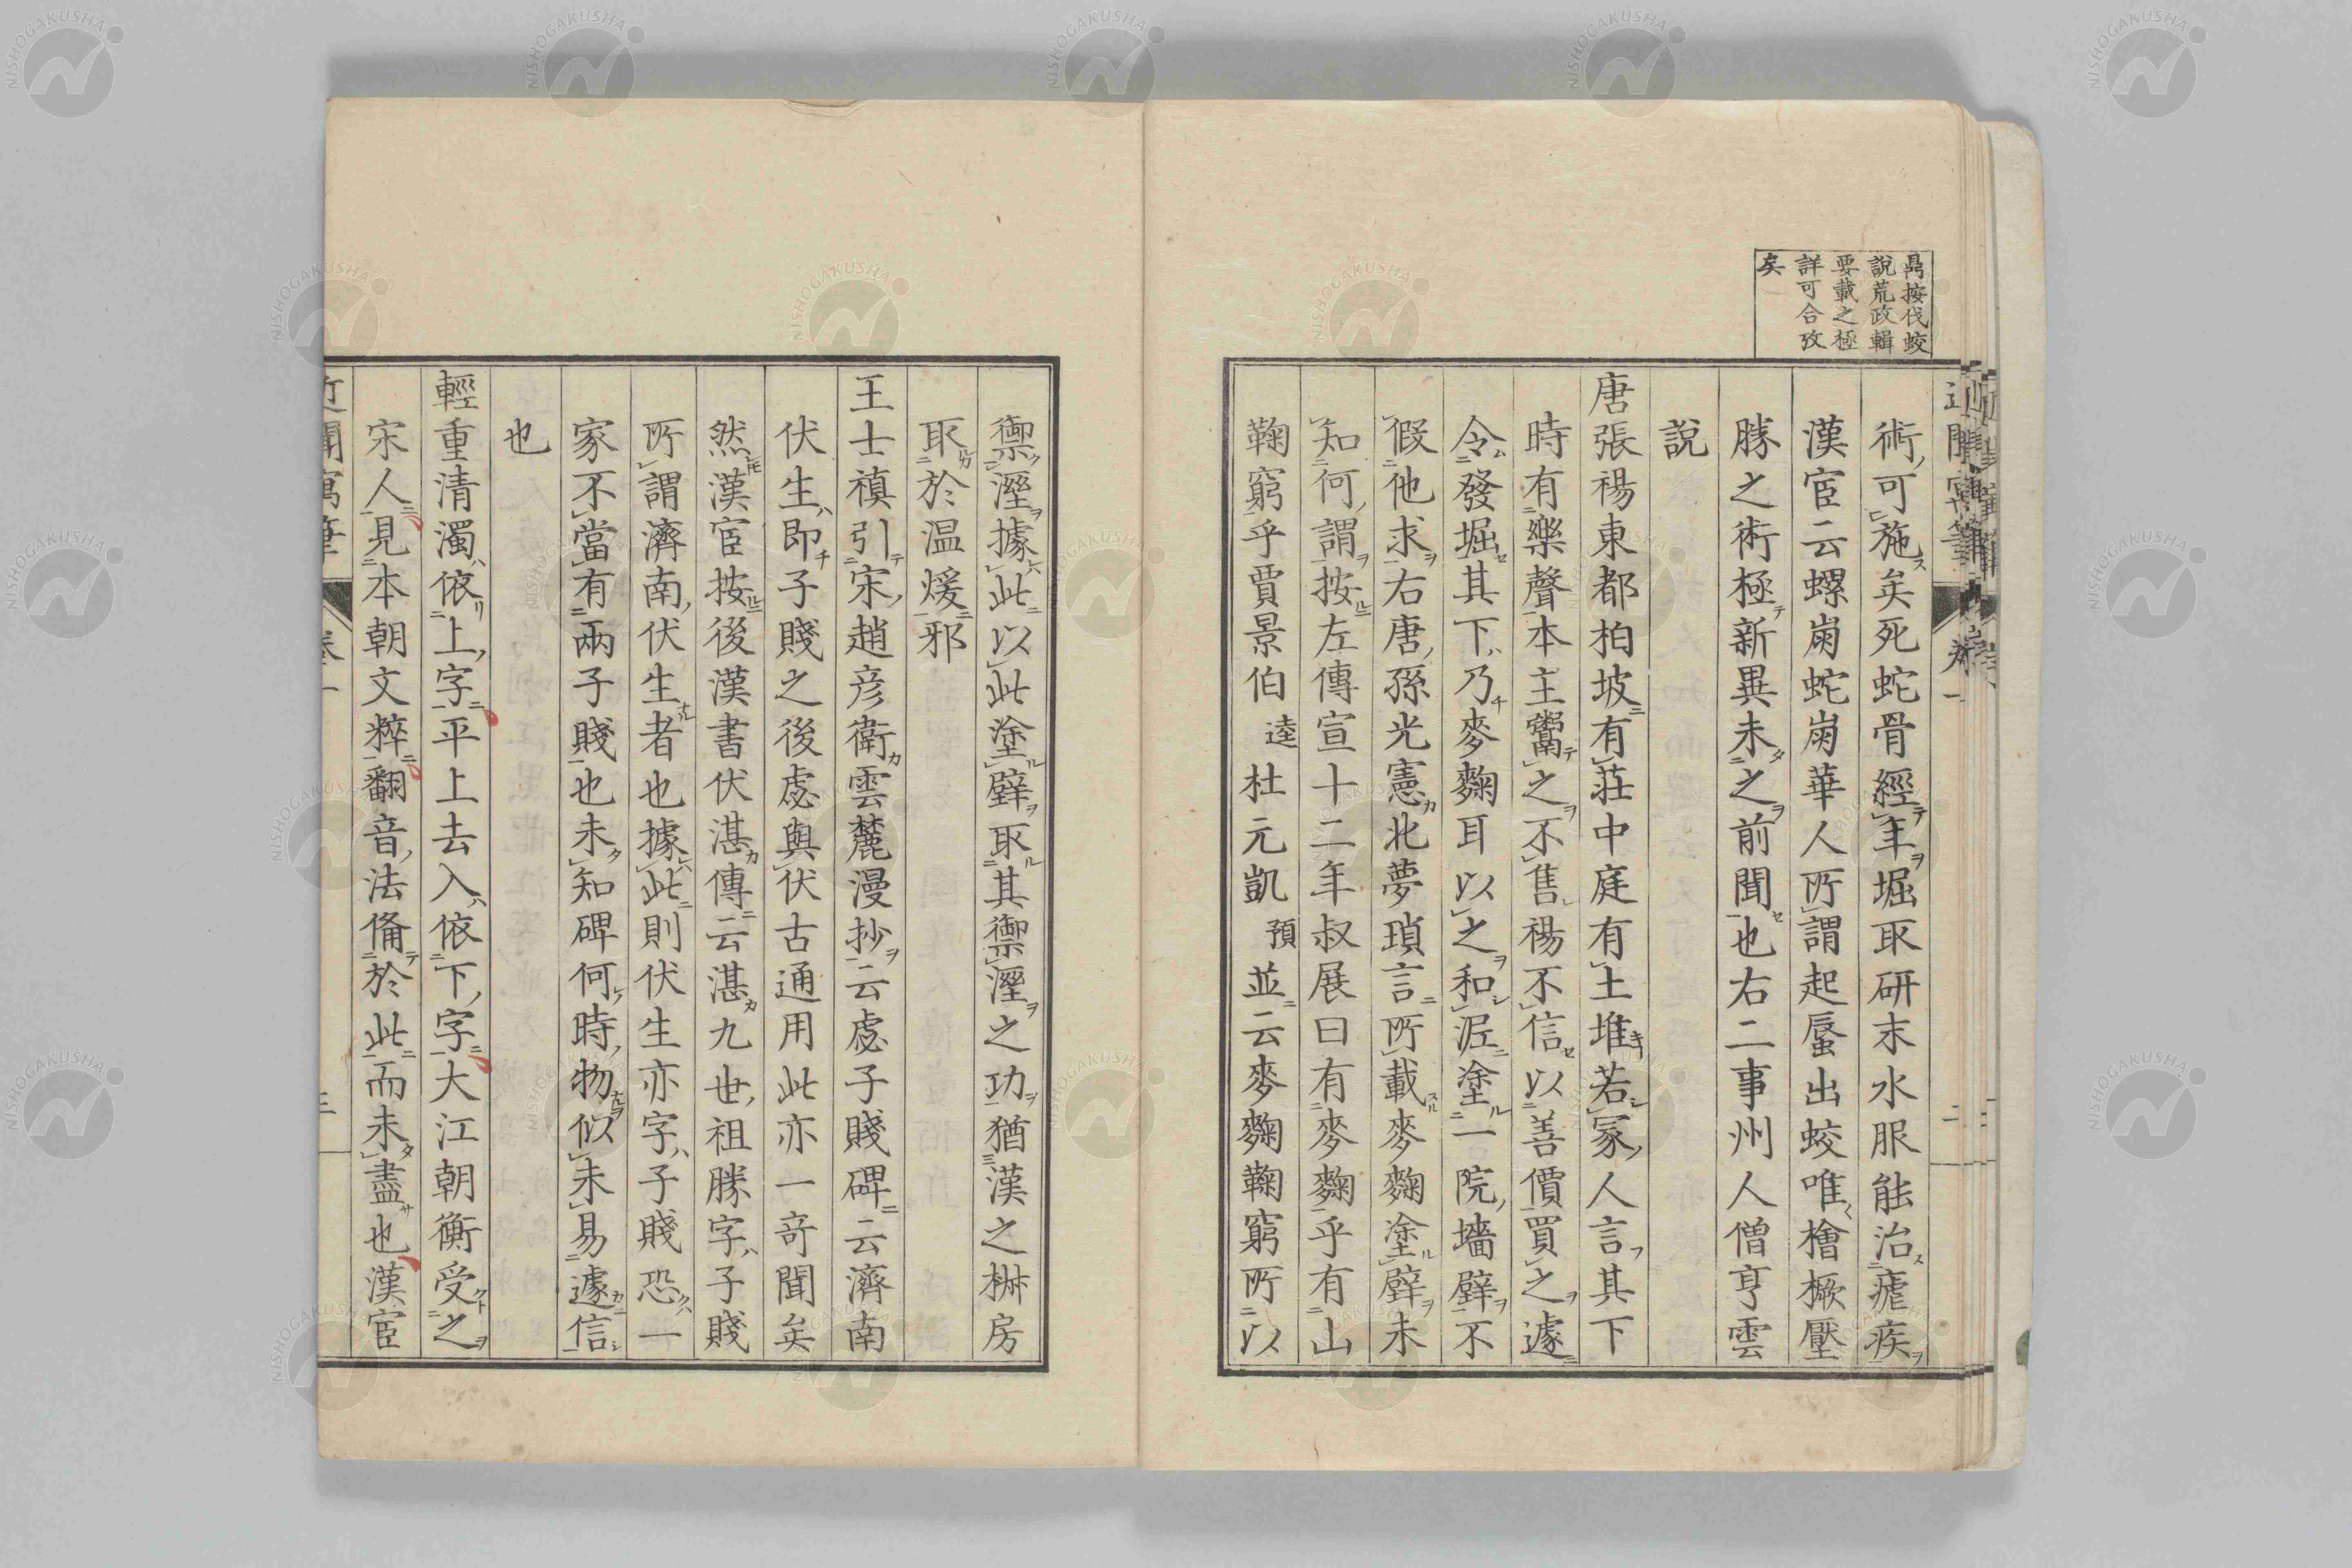 咼按伐蛟
說荒政輯
要載之極
詳可合攷
矣
術可施矣死蛇骨經年堀取研末水服能治瘧疾
漢宦云螺崩蛇崩華人所謂起蜃出蛟唯檜橛壓
勝之術極新異未之前聞也右二事州人僧亨雲
說
唐張裼東都柏坡有莊中庭有土堆若冢人言其下
時有樂聲本主鬻之不售裼不信以善價買之遽
令發堀其下乃麥麴耳以之和泥塗一院墻壁不
假他求右唐孫光憲北夢瑣言所載麥麴塗壁未
知何謂按左傳宣十二年叔展曰有麥麴乎有山
鞠窮乎賈景伯逵杜元凱預並云麥麴鞠窮所以
禦溼據此以此塗壁取其禦溼之功猶漢之椒房
取於温煖邪
王士禛引宋趙彦衛雲麓漫抄云虙子賤碑云濟南
伏生即子賤之後虙與伏古通用此亦一竒聞矣
然漢宦按後漢書伏湛傳云湛九世祖勝字子賤
所謂濟南伏生者也據此則伏生亦字子賤恐一
家不當有兩子賤也未知碑何時物似未易遽信
也
輕重清濁依上字平上去入依下字大江朝衡受之
宋人見本朝文粹翻音法備於此而未盡也漢宦
近聞寓筆 卷一 三